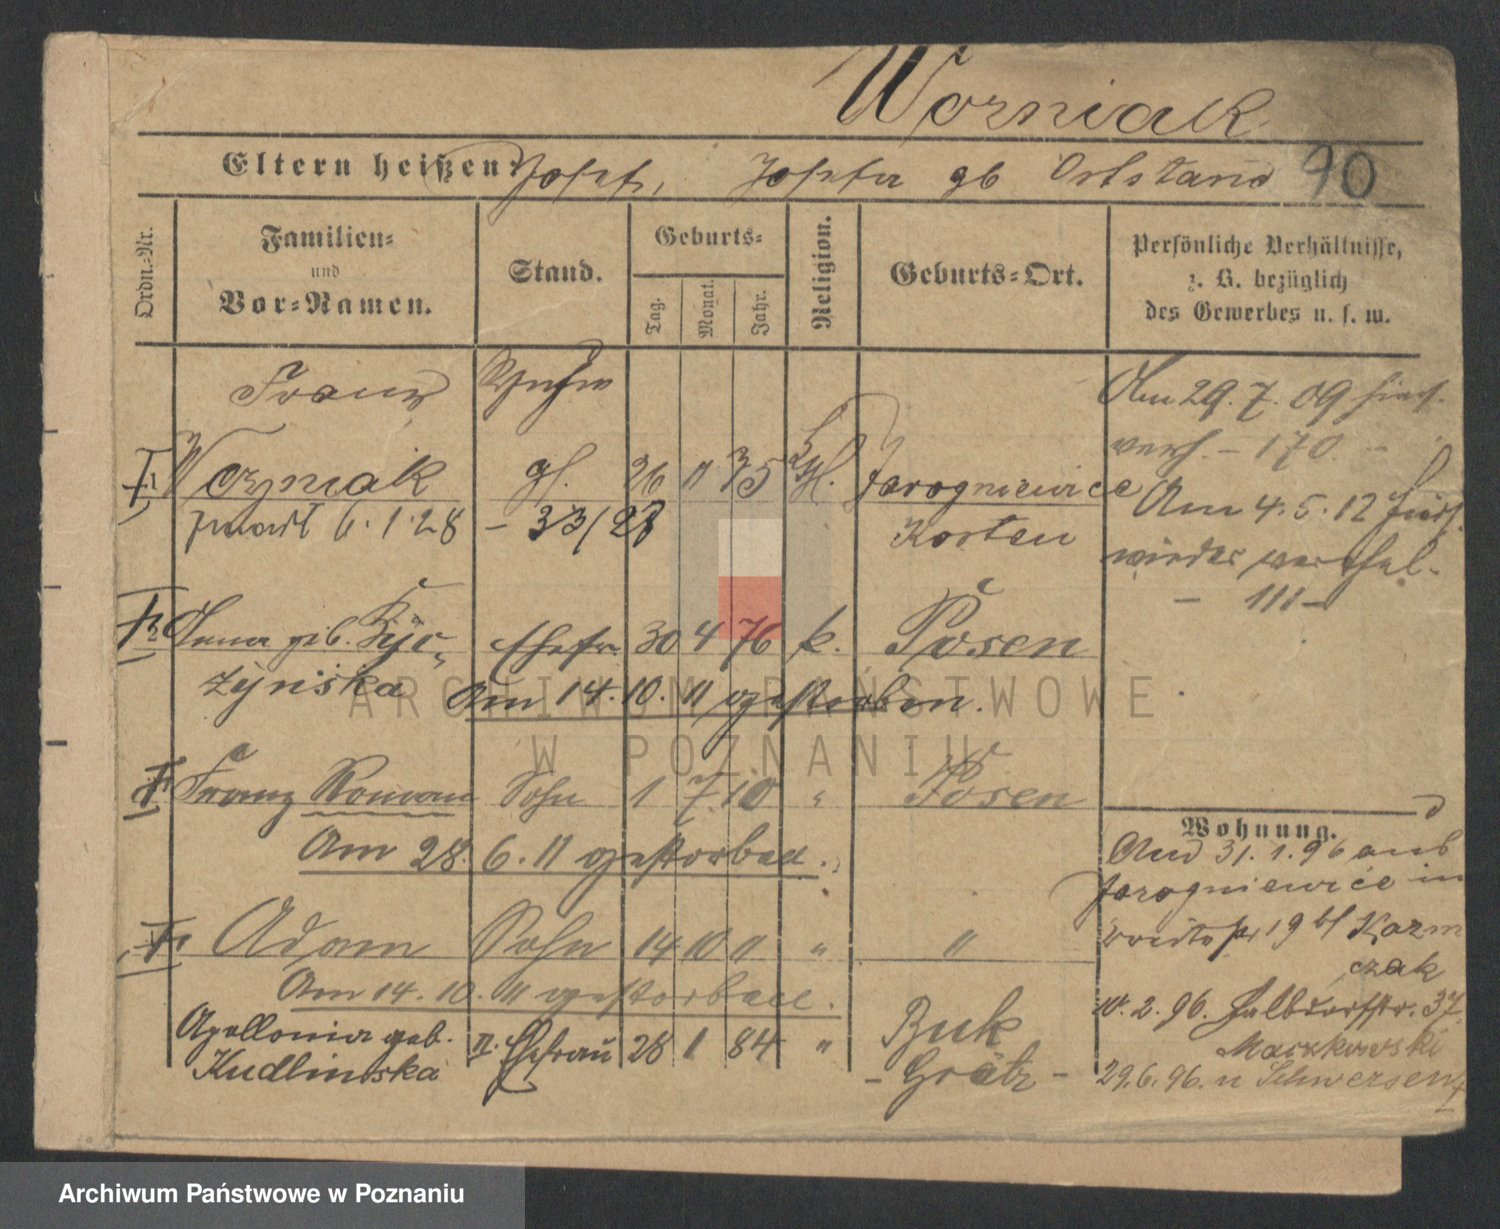 Worniak
Eltern heißen: Josef, Josefa gb Ortstand 90
Ordn.-Nr. Familien- und Vor-Namen. Stand. Geburts- Tag. Monat. Jahr. Religion. Geburts-Ort. Persönliche Verhältnisse, z. B. bezüglich des Gewerbes u. s. w.
Franz
Woźniak gl. 26 11 75 Jarogniewice
6.1.28 - 33/28 Kosten
Am 29.7.09 hier
verh. - 170. -
Am 4.5.12 hier
wieder verehel.
- 111 -
Anna geb. Kyc- Ehefr. 30 4 76 k. Posen
zyńska Am 14.10.11 gestorben.
Franz Roman Sohn 1 7 10 " Posen
Am 28.6.11 gestorben.
Adam Sohn 14 10 11 " "
Am 14.10.11 gestorben.
Apollonia geb. II. Ehefrau 28 1 84 " Buk
Kudlinska - Grätz -
Wohnung.
31.1.96 aus
Jarogniewice in
19 bl Kazm
czak
2.96. Halbdorfstr. 37.
Marzkowski
29.6.96. n Schwersenz
ARCHIWUM PAŃSTWOWE
W POZNANIU
Archiwum Państwowe w Poznaniu